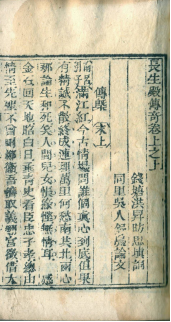 長生殿傳奇卷上之上
錢塘洪昇昉思填詞
同里吳人舒鳧論文
傳槩 末上
南呂滿江紅今古情塲問誰個真心到底但果
有精誠不散終成連理萬里何愁南共北兩心
那論生和死笑人間兒女悵緣慳無情耳 感
金石回天地昭白日垂青史看臣忠子孝總由
情至先聖不曾刪鄭衛吾儕取義翻宮徵借太